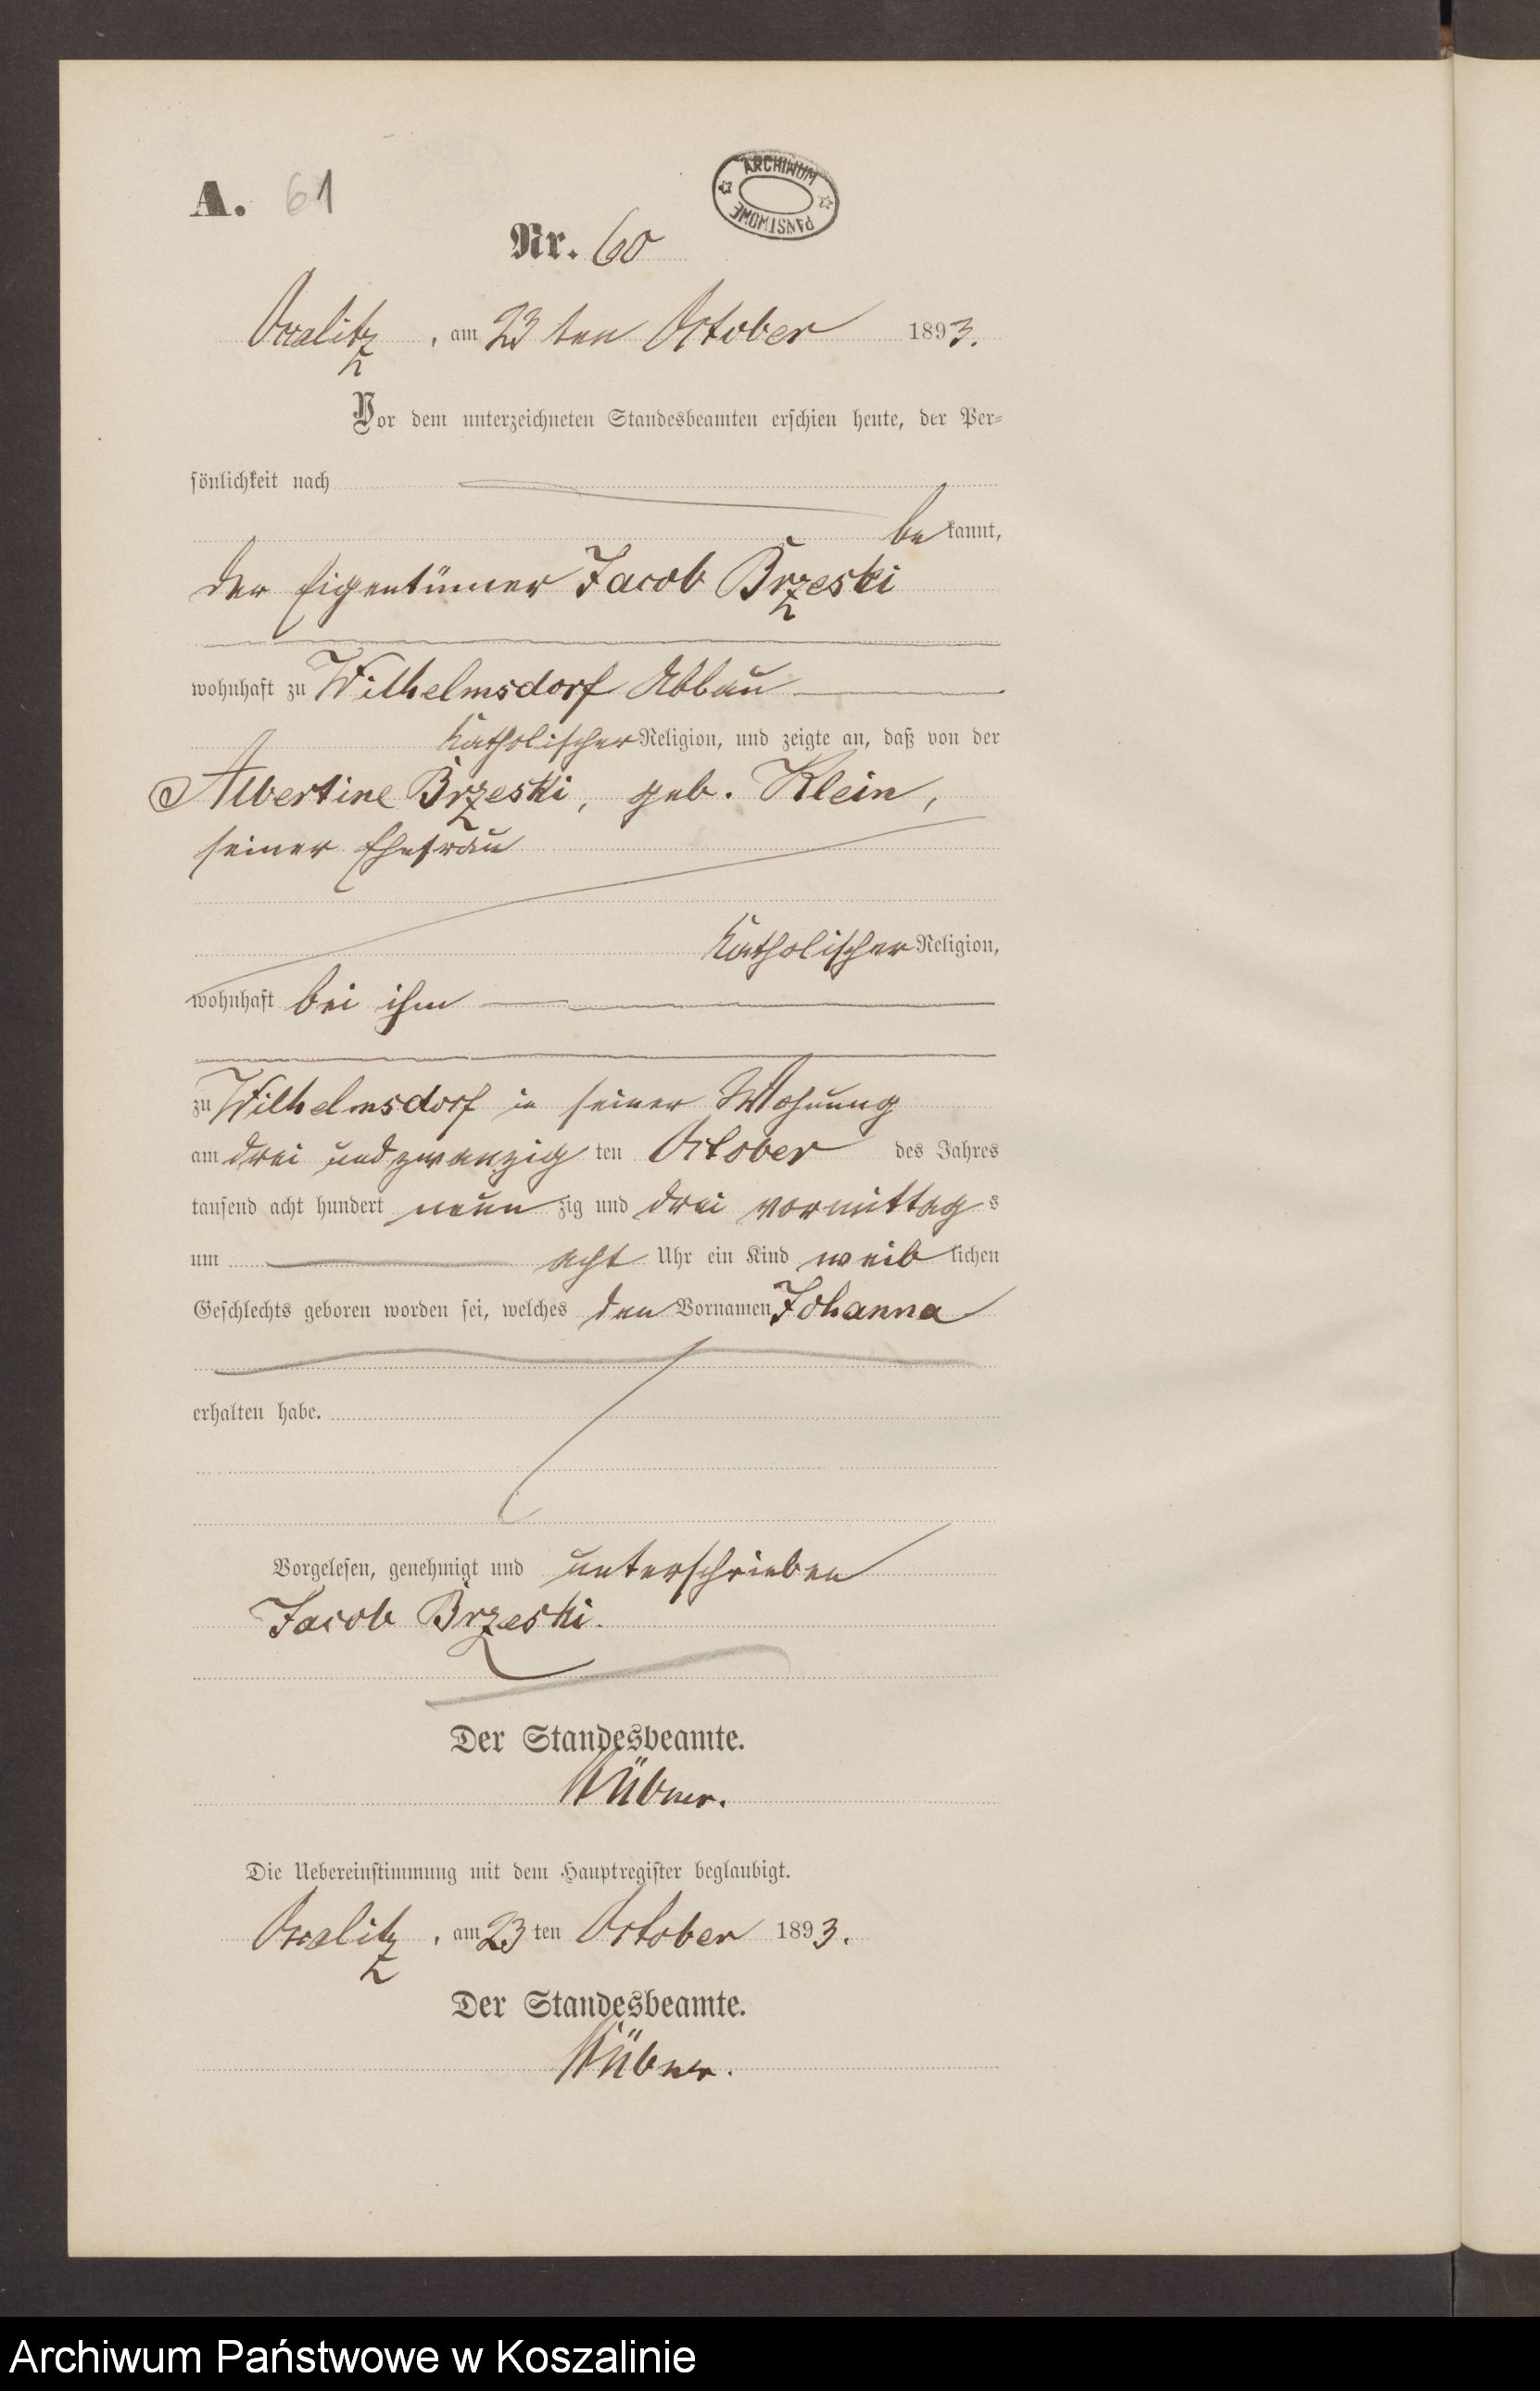 A. 61
ARCHIWUM PAŃSTWOWE
Nr. 60
Oscalitz, am 23 ten October 1893.
Vor dem unterzeichneten Standesbeamten erschien heute, der Per-
sönlichkeit nach
be kannt,
der Eigentümer Jacob Brzeski
wohnhaft zu Wilhelmsdorf Abbau
katholischer Religion, und zeigte an, daß von der
Albertine Brzeski, geb. Klein,
seiner Ehefrau
katholischer Religion,
wohnhaft bei ihm
zu Wilhelmsdorf in seiner Wohnung
am drei und zwanzig ten October des Jahres
tausend acht hundert neun zig und drei vormittag s
um acht Uhr ein Kind weib lichen
Geschlechts geboren worden sei, welches den Vornamen Johanna
erhalten habe.
Vorgelesen, genehmigt und unterschrieben
Jacob Brzeski.
Der Standesbeamte.
Die Uebereinstimmung mit dem Hauptregister beglaubigt.
Oscalitz, am 23 ten October 1893.
Der Standesbeamte.
Archiwum Państwowe w Koszalinie